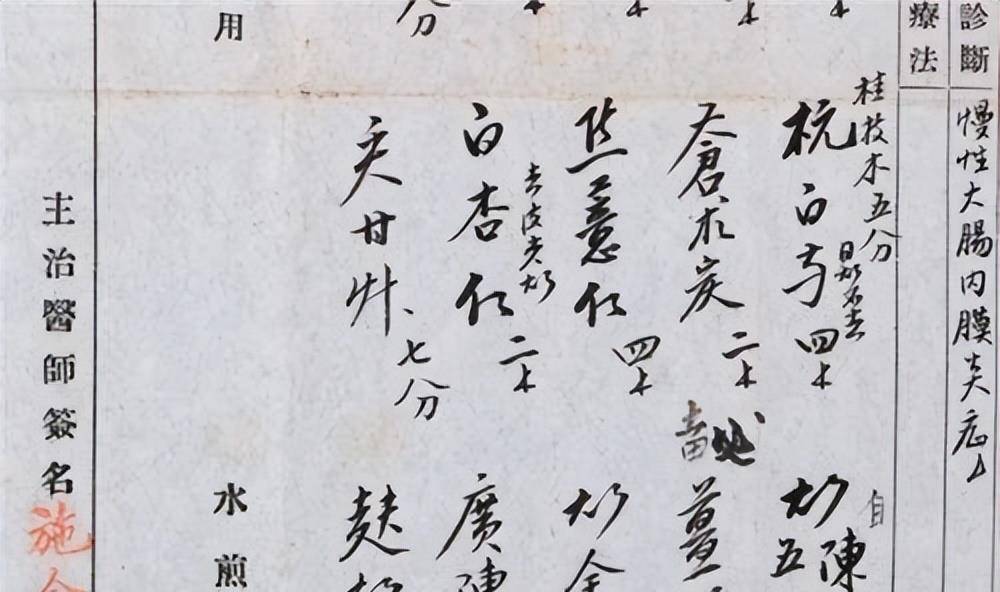 診斷
慢性大腸内膜炎症
療法
桂枝木五分
杭白芍四
蒼朮炭二
焦薏仁四
去皮尖炒
白杏仁二
炙甘草、七分
自
陳
炒五
薑
炒金
廣陳
麸
分
用
水煎
主治醫師簽名
施今